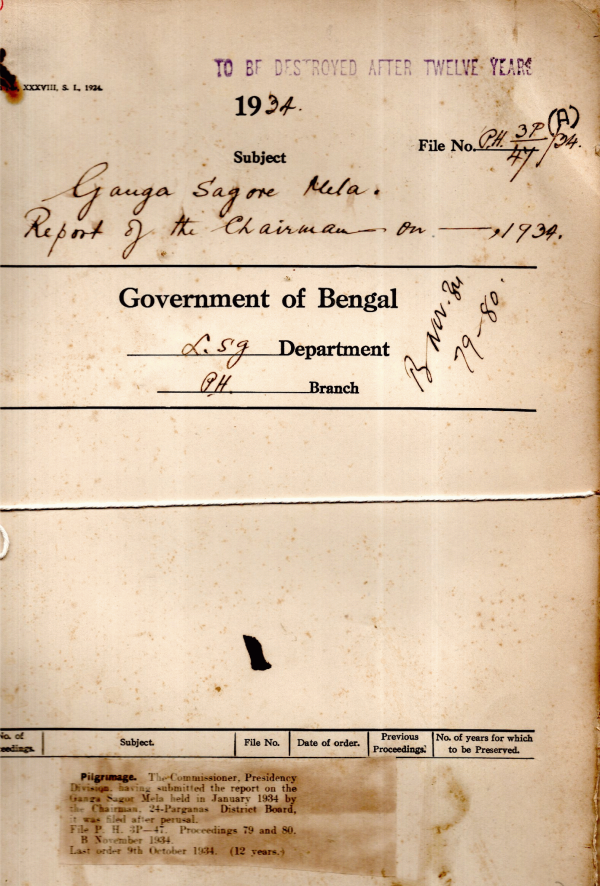 XXXVIII, S. I., 1924.
TO BE DESTROYED AFTER TWELVE YEARS
1934.
File No. P.H. 3P/47/34. (A)
Subject
Ganga Sagore Mela.
Report of the Chairman on — , 1934.
Government of Bengal
L.S.G Department
P.H. Branch
B Nov. 34
79-80.
No. of
Proceedings.
Subject.
File No.
Date of order.
Previous
Proceedings.
No. of years for which
to be Preserved.
Pilgrimage. The Commissioner, Presidency
Division, having submitted the report on the
Ganga Sagor Mela held in January 1934 by
the Chairman, 24-Parganas District Board,
it was filed after perusal.
File P. H. 3P—47. Proceedings 79 and 80.
B November 1934.
Last order 9th October 1934. (12 years.)